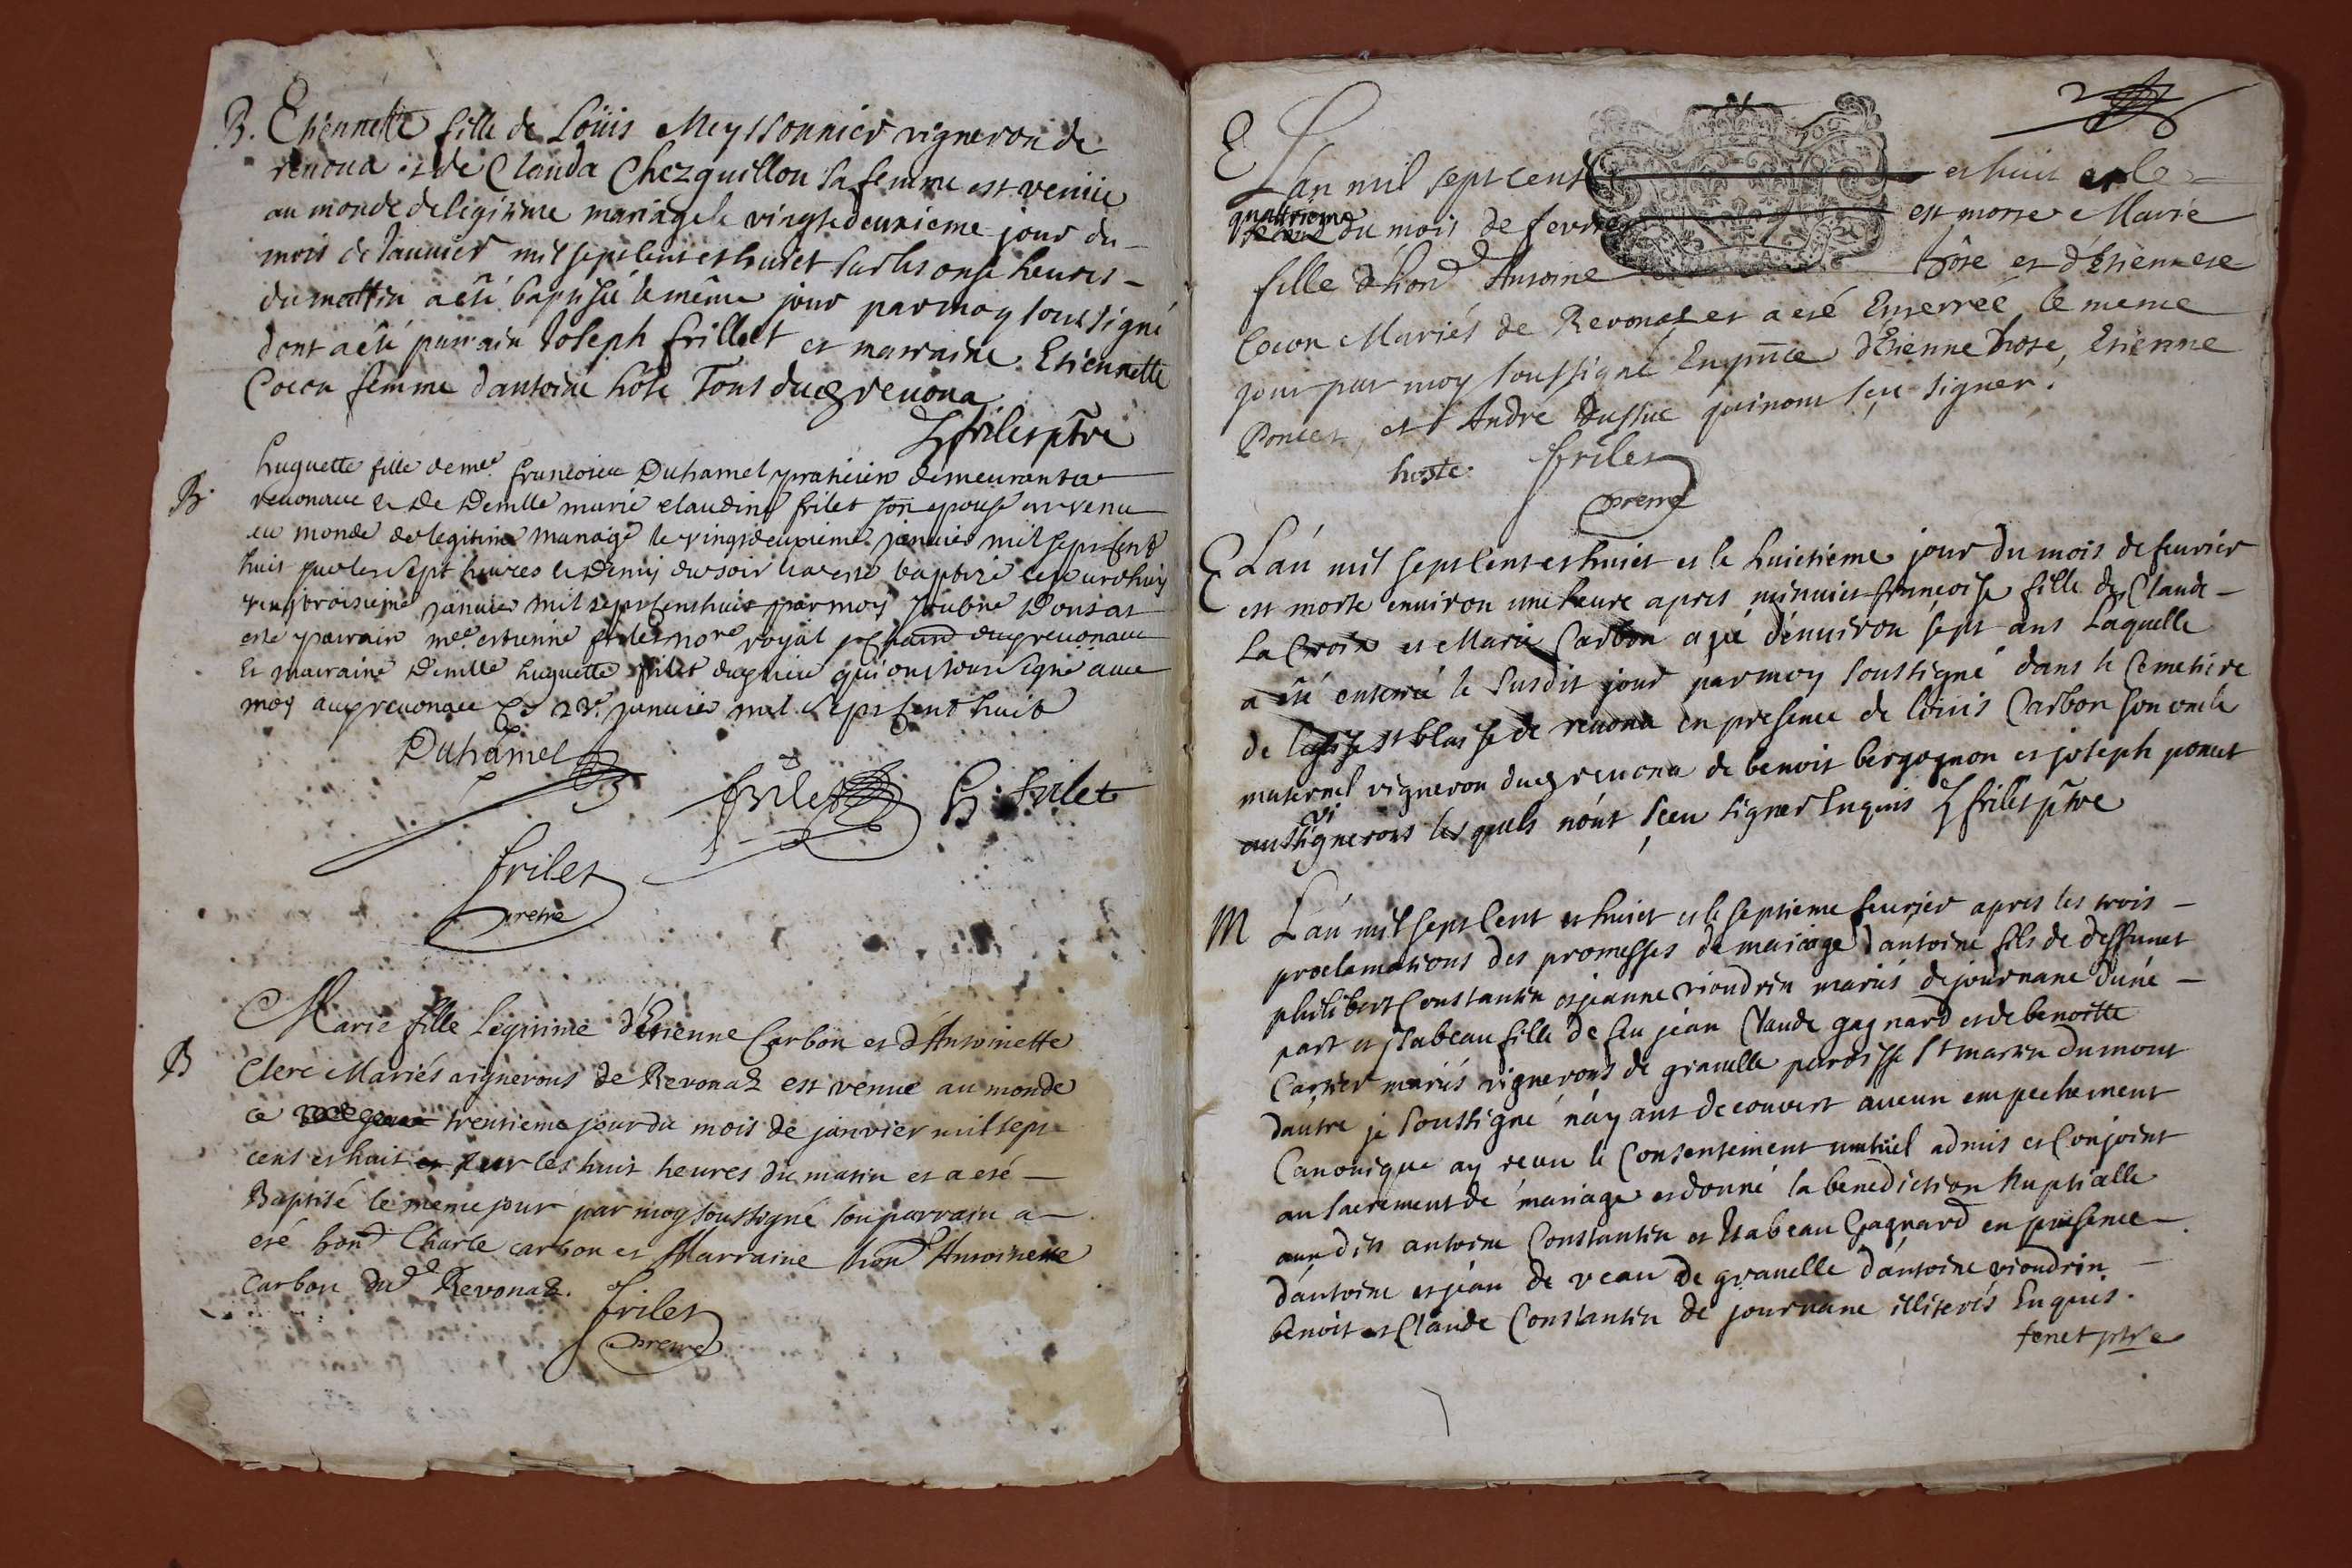 B. Etiennette fille de Loüis Meyssonnier vigneron de
renoua et de Clauda Chezguillon sa femme est venüe
au monde de legitime mariage le vingtedeuxieme jour du
mois de Januier mil sept cent et huict sur les onse heures
du mattin a esté baptisée le même jour par moy soussigné
dont a esté parrain Joseph frillet et marraine Etiennette
Cocon femme d'antoine hôte Tous dud revona
frilet ptre
B. huguette fille de me francois Duhamel praticien demeurant a
reuonace et De Demlle marie claudine frilet son epouse est venu
au monde de legitime mariage le vingtdeuxieme januier mil sept cent
huit sur les sept heures et demy du soir et a esté baptizé ce jourdhuy
vingt troisieme januier mil sept cent huit par moy
este parrain me estienne frilet nore royal
et marraine Demlle huguette frilet qui ont tous signé auec
moy au reuonace ce 23e januier mil sept cent huit
Duhamel
frilet H. frilet
frilet
pretre
Marie fille Legitime d'Etienne Carbon et d'Antoinette
B Clerc Mariés vignerons de Revonaz est venue au monde
ce trentieme jour du mois de janvier mil sept
cent et huit sur les huit heures du matin et a eté
Baptisé le meme jour par moy soussigné son parrain a
eté hond Charle carbon et Marraine hond Antoinette
Carbon dud Revonaz.
frilet
pretre
2
E L'an mil sept cent et huit et le
quatrieme du mois de fevrier est morte Marie
fille d'hond Antoine hôte et d'Etiennete
Cocon Mariés de Revonaz et a eté Enterreé le meme
jour par moy soussigné En pnce d'Etienne hote, Etienne
Poncet, et André Dussuc qui n'ont seu signer.
hoste. frilet
pretre
E L'an mil sept cent et huict et le huictieme jour du mois de feurier
est morte enuiron une heure apres minuict francoise fille de Claude
La Croix et Marie Carbon agé d'enuiron sept ans Laquelle
a été enterreé le susdit jour par moy soussigné dans le Cemetiere
de l'eglise st blaise de renona en presence de loüis Carbon son oncle
maternel vigneron dud revona de benoit bergognon et joseph poncet
aussi vignerons lesquels n'ont sceu signer Enquis frilet ptre
M L'an mil sept cent et huict et le septieme feurier apres les trois
proclamations des promesses de mariage d'antoine fils de deffunct
philibert Constantin et jeanne viondrin mariés de journane d'une
part et jsabeau fille de feu jean Claude gagnard et de benoitte
Carrier mariés vignerons de grauelle paroisse st martin du mont
d'autre je soussigné n'ayant decouvert aucun empechement
Canonique ay receu le Consentement mutüel admis et Conjoint
au sacrement de mariage et donné la benediction Nuptialle
aux dits antoine Constantin et Isabeau Gagnard en presence
d'antoine et jean de veau de grauelle d'antoine viondrin
benoit et Claude Constantin de journane illiterés Enquis.
fenet ptre